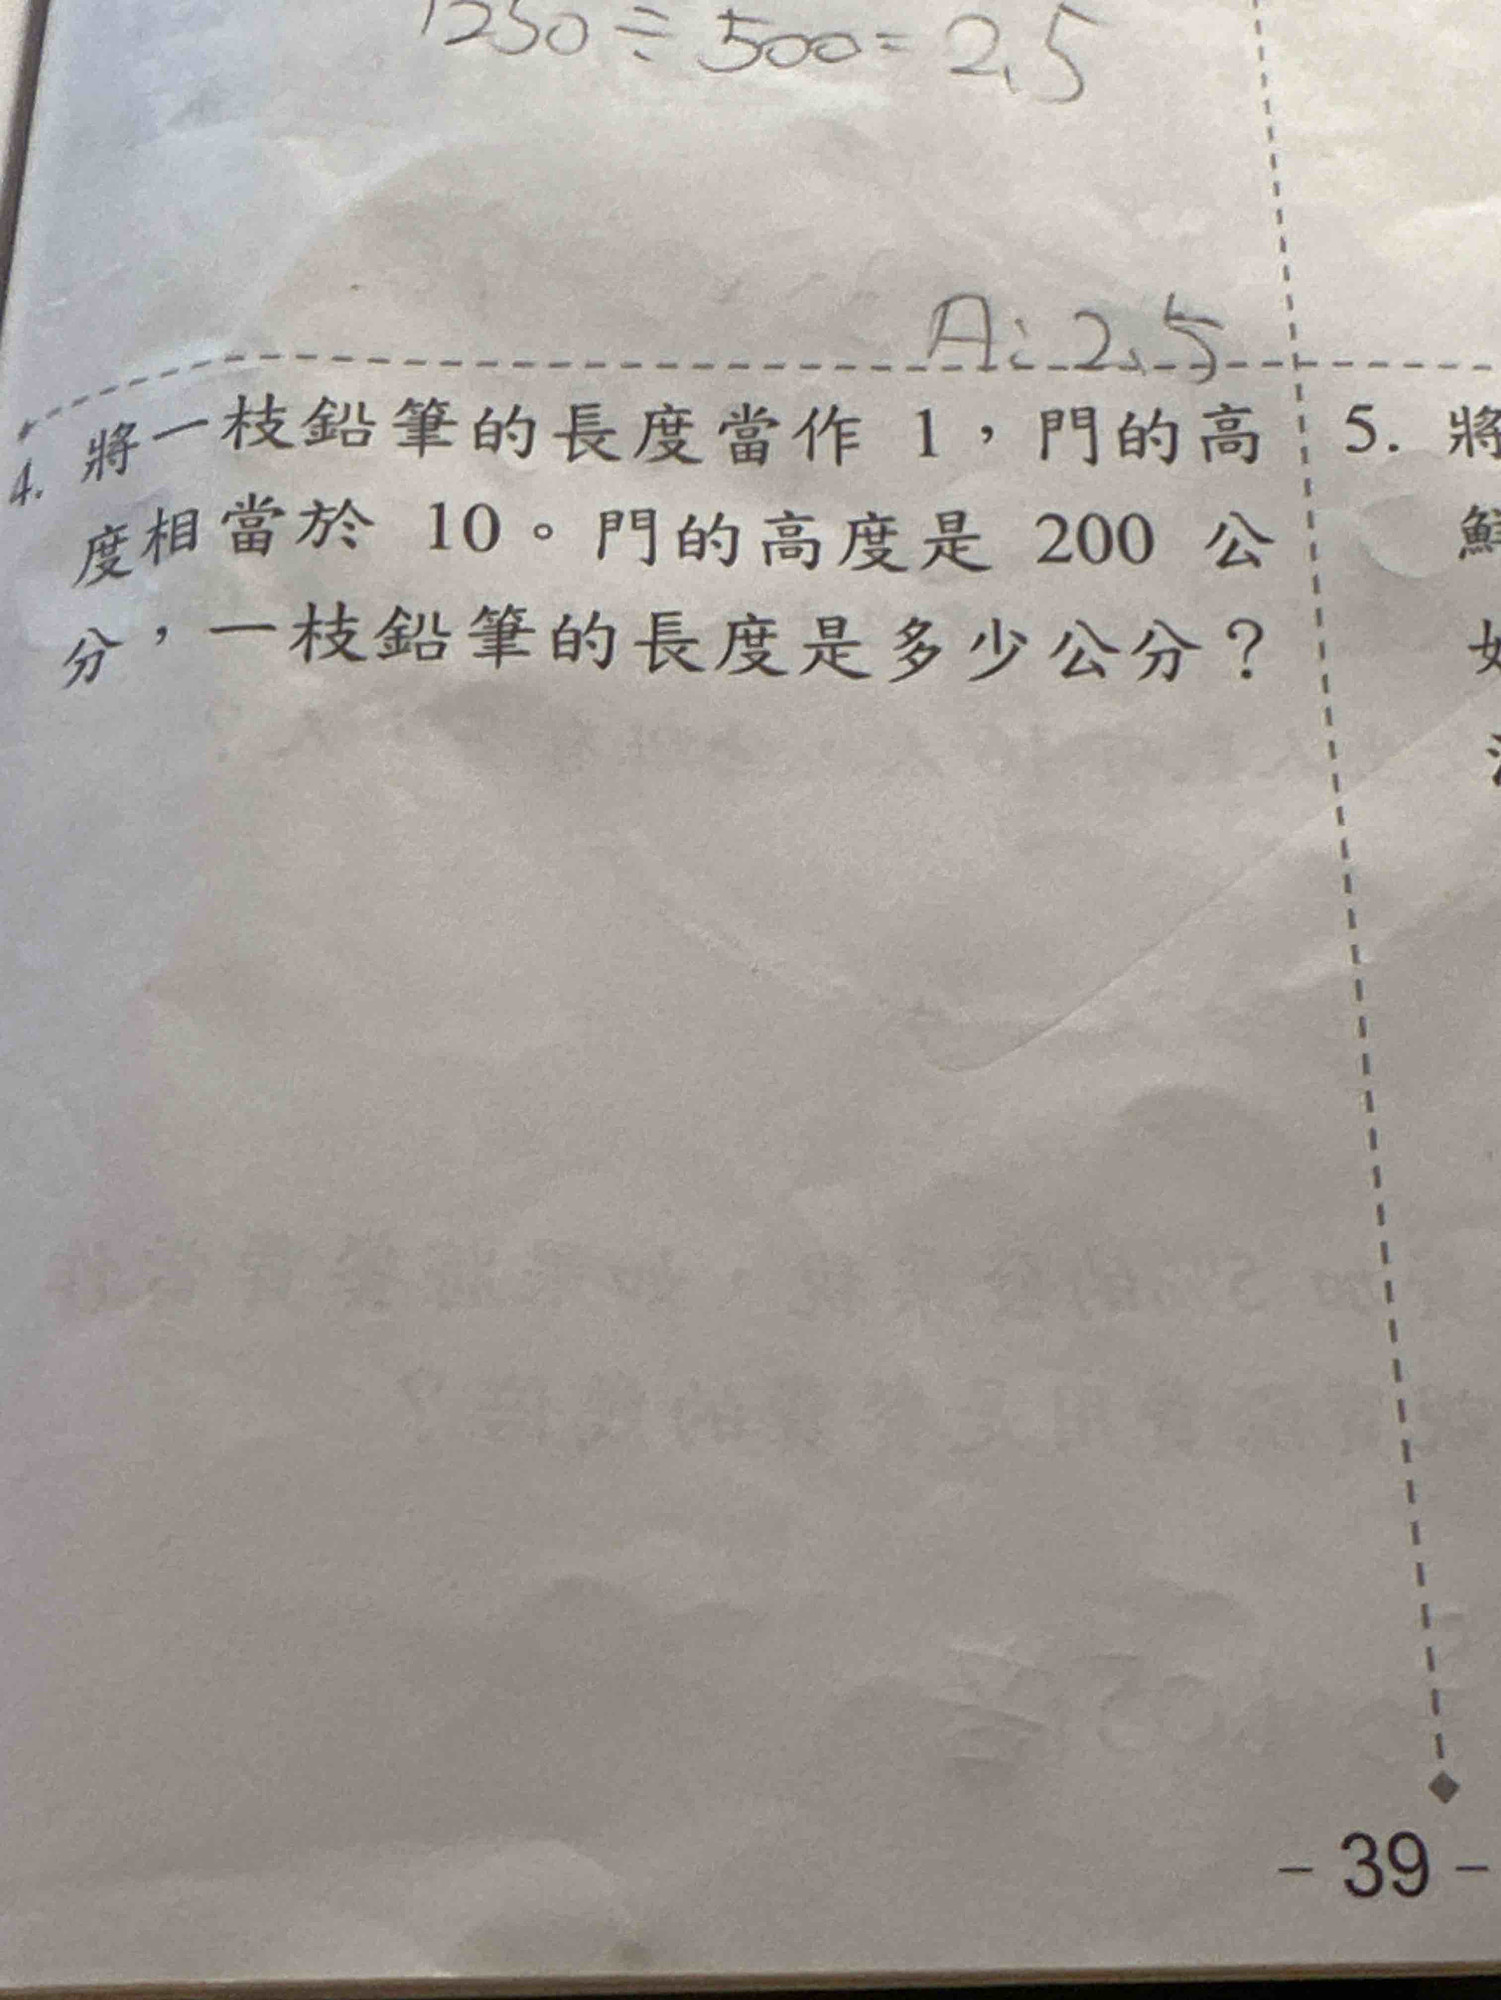 1250÷500=2.5
A:2.5
4. 將一枝鉛筆的長度當作 1，門的高
度相當於 10。門的高度是 200 公
分，一枝鉛筆的長度是多少公分？
5. 將
鮮
- 39 -